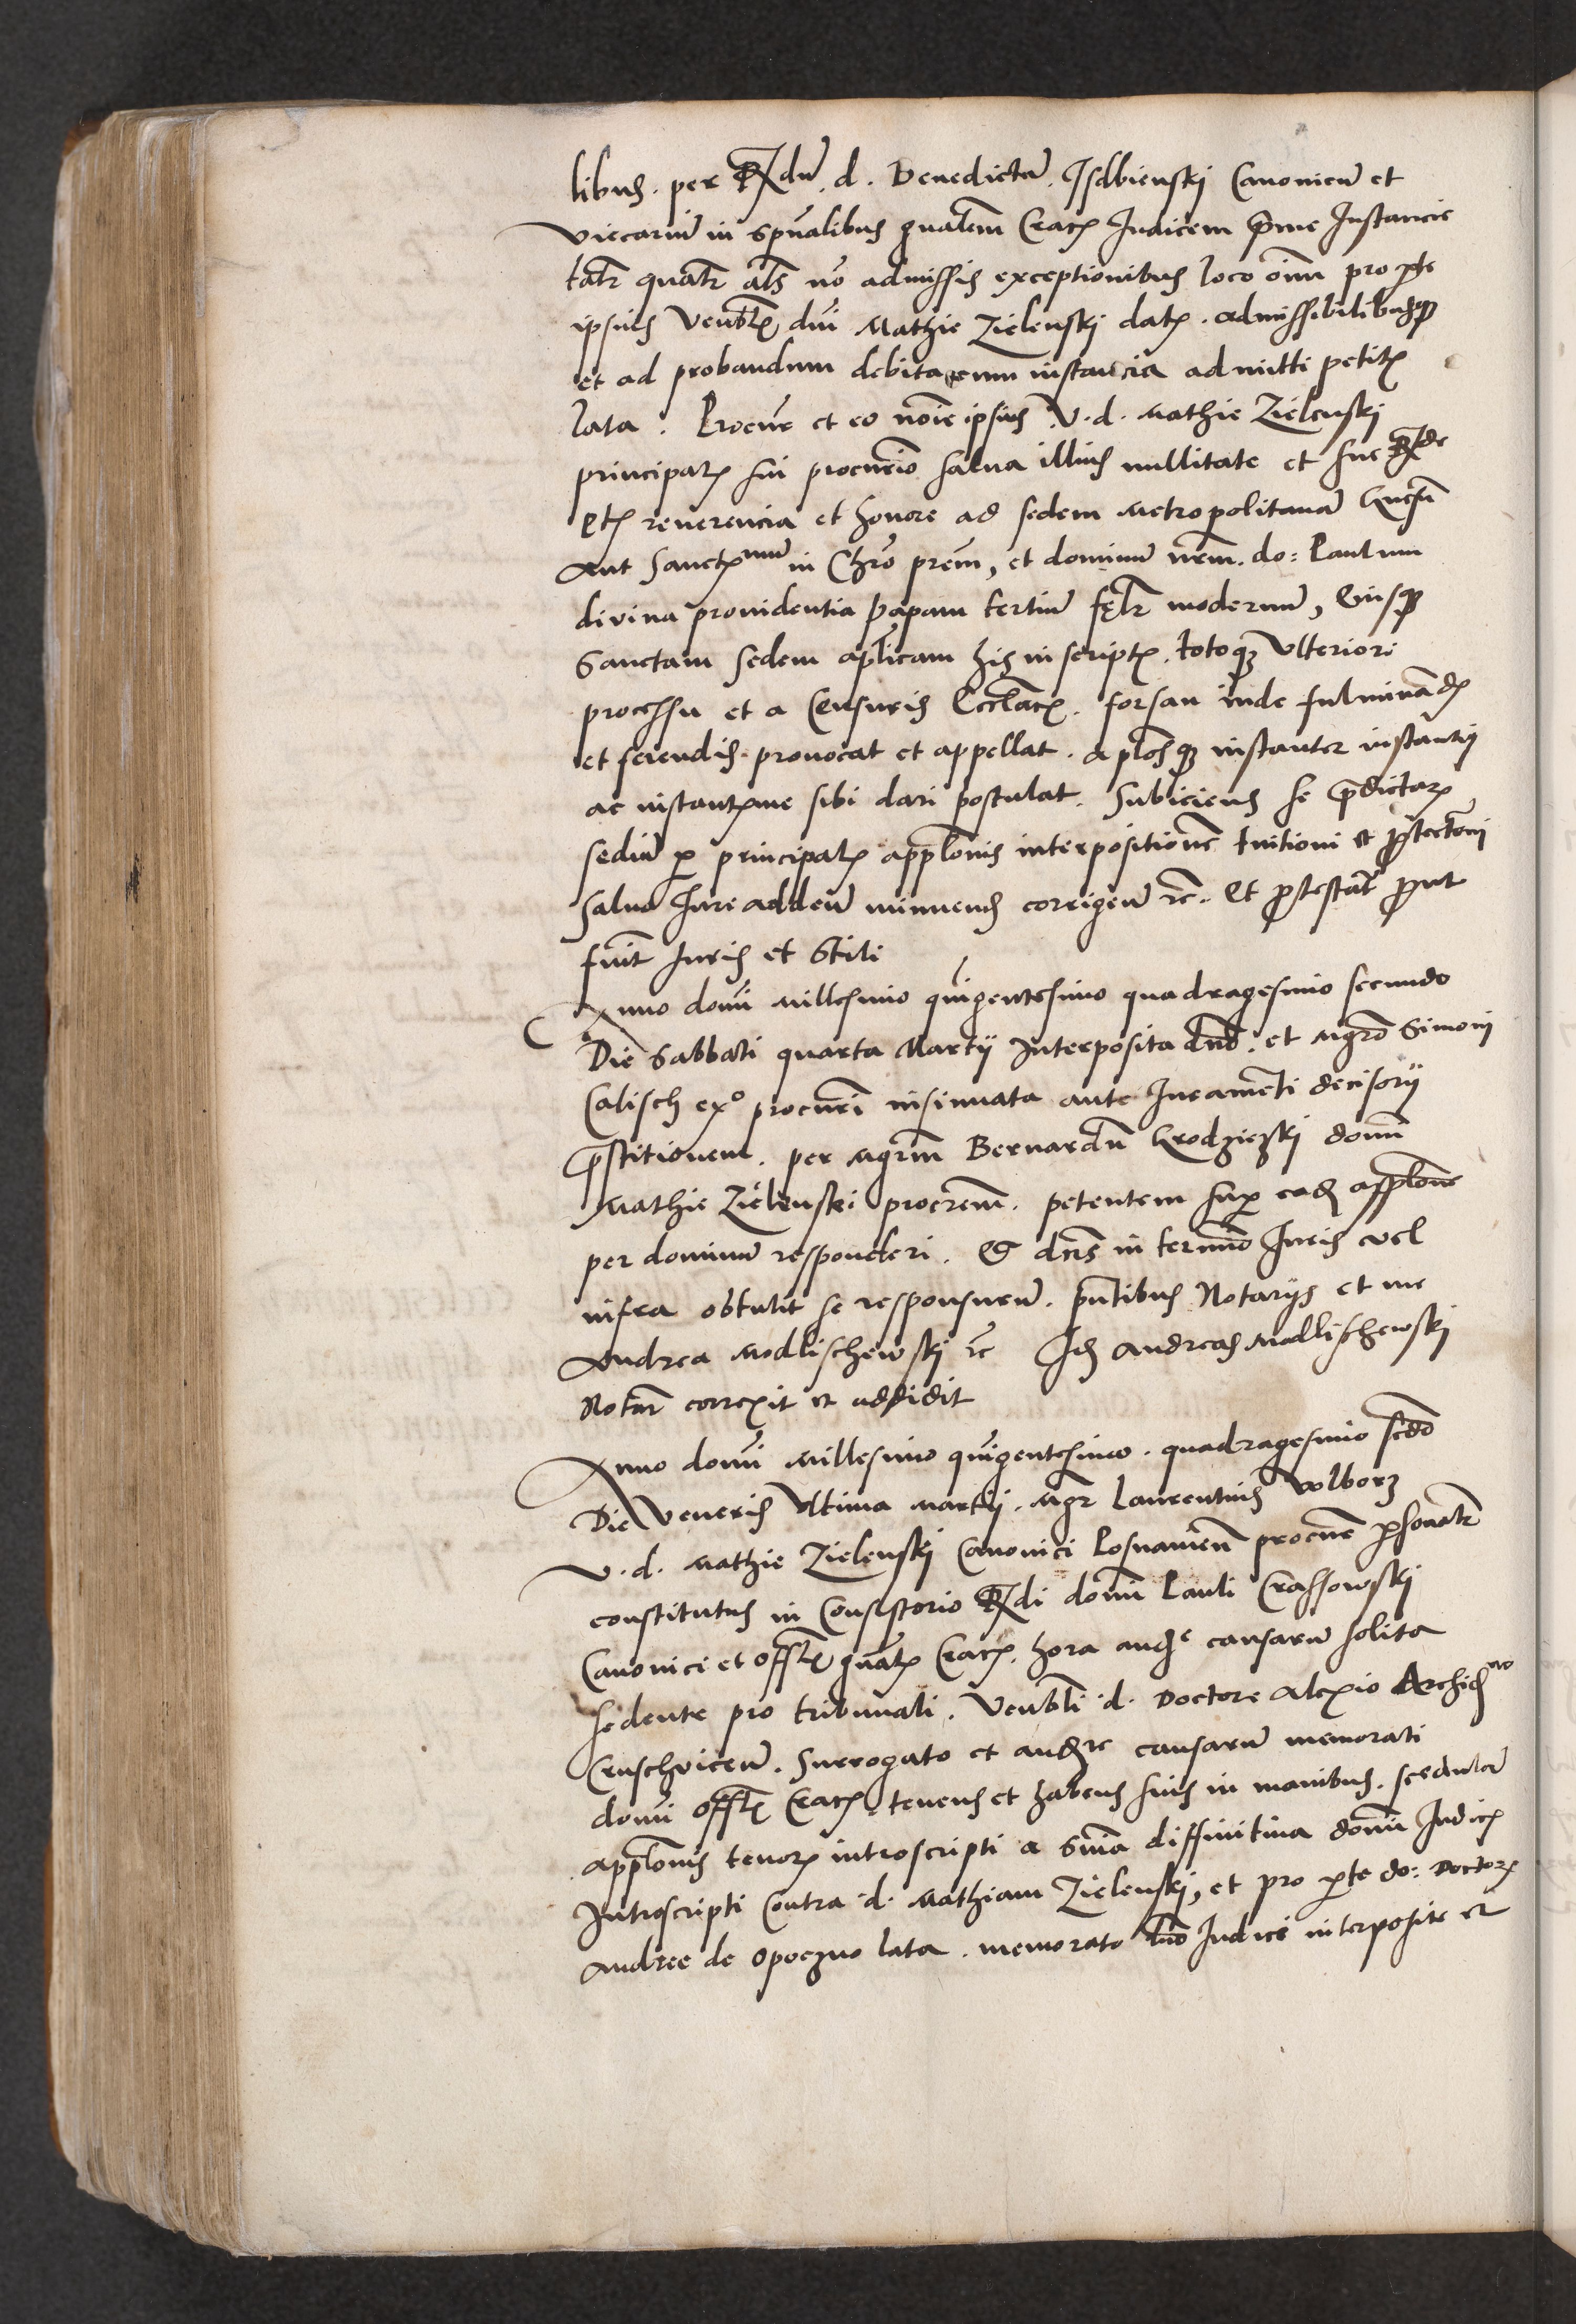 libus. per R(dum). d. Benedictum. Isdbienski Canonicum et
Viccarium in sp(irit)ualibus g(e)n(er)alem Crac(ovien) Iudicem p(ri)me Instancie
latr quatr als no(n) admissis exceptionibus loco o(mn)ium pro p(ar)te
ipsius Ven(era)b(i)l(is) d(omi)ni Mathie Zielenski dat(is). admissibilibusq(ue)
et ad probandum debita cum instancia admitti petit(is)
lata. Procur(ator) et eo no(m)i(n)e ipsius V. d. Mathie Zielenski
principal(is) sui procur(atori)o salua illius nullitate et sue R(de)
P(a)t(ernitatis) reuerencia et honore ad sedem Metropolitanam Gnesn(en)
Aut Sanctiss(i)mum in Chr(ist)o p(at)rem, et dominum n(ost)rum. do: Paulum
diuina prouidentia Papam tertium fe(lici)t(e)r modernum, Eiusq(ue)
Sanctam sedem ap(osto)licam his in script(is). totoq(ue) Vlteriori
processu et a Censuris Eccl(es)iast(icis). forsan inde fulminand(is)
et ferendis. prouocat et appellat. Ap(osto)losq(ue) instanter instanti(us)
ac instantissime sibi dari postulat. Subiiciens se p(rae)dictar(um)
sedium p(er) principal(is) app(el)l(aci)onis interpositione(m) tuitioni et p(ro)tect(i)oni
Saluo Iure addend(i) minuend(i) corrigend(i) etc. Et p(ro)testat(ur) p(ro)ut
fuit Iuris et Stili
Anno domi(ni) Millesimo quingentesimo quadragesimo secundo
Die Sabbati quarta Martij Interposita d(omi)no. et M(a)g(ist)ro Simoni
Calisch ex(adverso) procur(ator)i insinuata ante Iurame(n)ti decisorij
p(rae)stitionem. per M(a)g(ist)rum Bernard(u)m Grodzieski domi(ni)
Mathie Zielenski procur(ato)rem. petentem sup(er) ead(em) app(el)l(aci)one
per dominum responderi. Et d(omi)n(u)s in termino Iuris vel
infra obtulit se responsurum. p(raese)ntibus Notarijs et me
Andrea Modlischewski etc Id(em) Andreas Modlischewski
Notari(us) correxit et addidit
Anno domi(ni) Millesimo quingentesimo. quadragesimo s(e)c(un)do
Die Veneris Vltima Martij. M(a)g(iste)r Laurentius Wolborz
V. d. Mathie Zielenski Canonici Posnanien(sis) procur(ator) p(er)sonal(ite)r
constitutus in Consistorio R(euerendi) domi(ni) Pauli Crassowski
Canonici et Off(icia)l(is) g(e)n(er)al(is) Crac(ovien). hora aud(ien)c(i)e causarum solita
sedente pro tribunali. Ven(era)b(i)li d. Doctore Alexio Archid(iaco)no
Cruschwicen(si). Surrogato et audi(to)re causarum memorati
domi(ni) Off(icia)l(is) Crac(ovien). tenens et habens suis in manibus. scedulam
app(el)l(aci)onis tenor(is) introscripti a S(ente)n(t)ia diffinitiua domi(ni) Iudic(is)
Introscripti Contra d. Mathiam Zielenski, et pro p(ar)te do: Doctor(is)
Andree de Opoczno lata. memorato d(omi)no Iudici interposite et